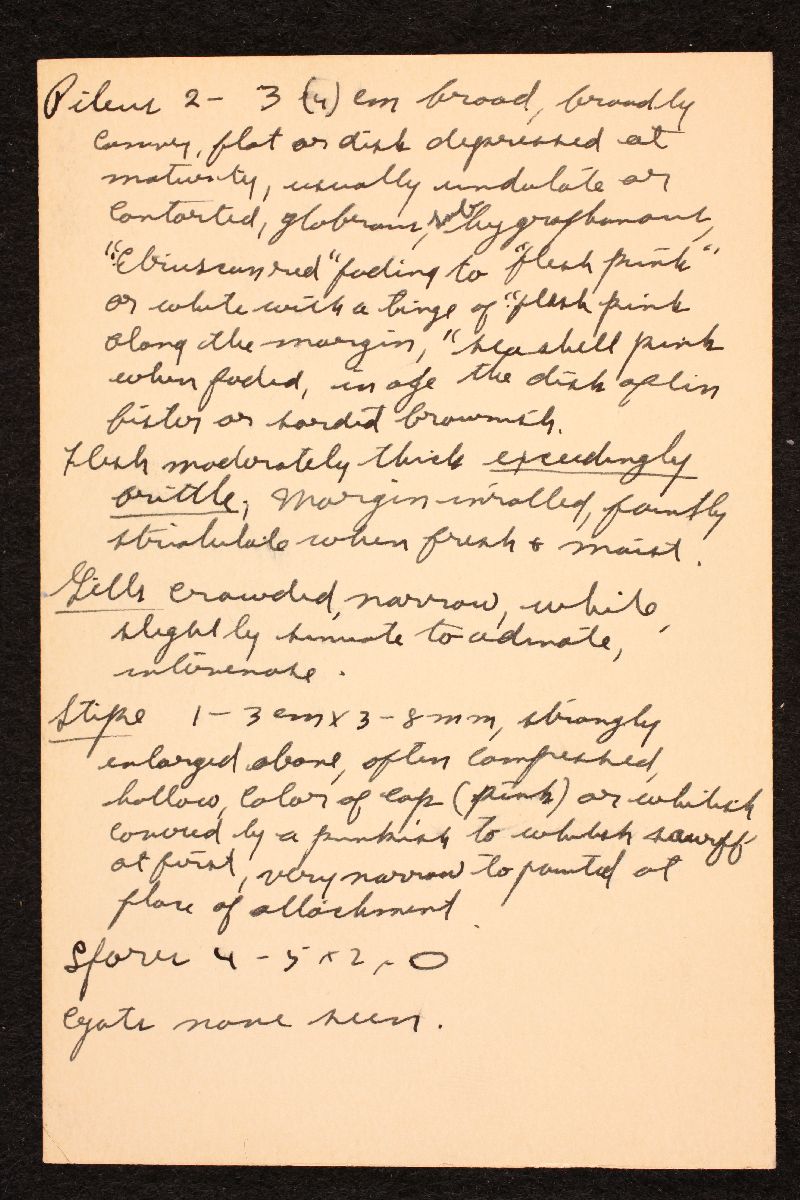 Pileus 2 - 3 (4) cm broad, broadly
convex, flat or disk depressed at
maturity, usually undulate or
contorted, glabrous, sub hygrophanous,
"Etruscan red" fading to "flesh pink"
or white with a tinge of "flesh pink
along the margin, "seashell pink
when faded, in age the disk often
bister or sordid brownish.
Flesh moderately thick exceedingly
brittle; Margin inrolled, faintly
striatulate when fresh & moist.
Gills crowded, narrow, white,
slightly sinuate to adnate,
intervenose.
Stipe 1 - 3 cm x 3 - 8 mm, strongly
enlarged above, often compressed,
hollow, color of cap (pink) or whitish
covered by a pinkish to whitish scurff
at first, very narrow to pointed at
place of attachment.
Spores 4 - 5 x 2
Cysts none seen.